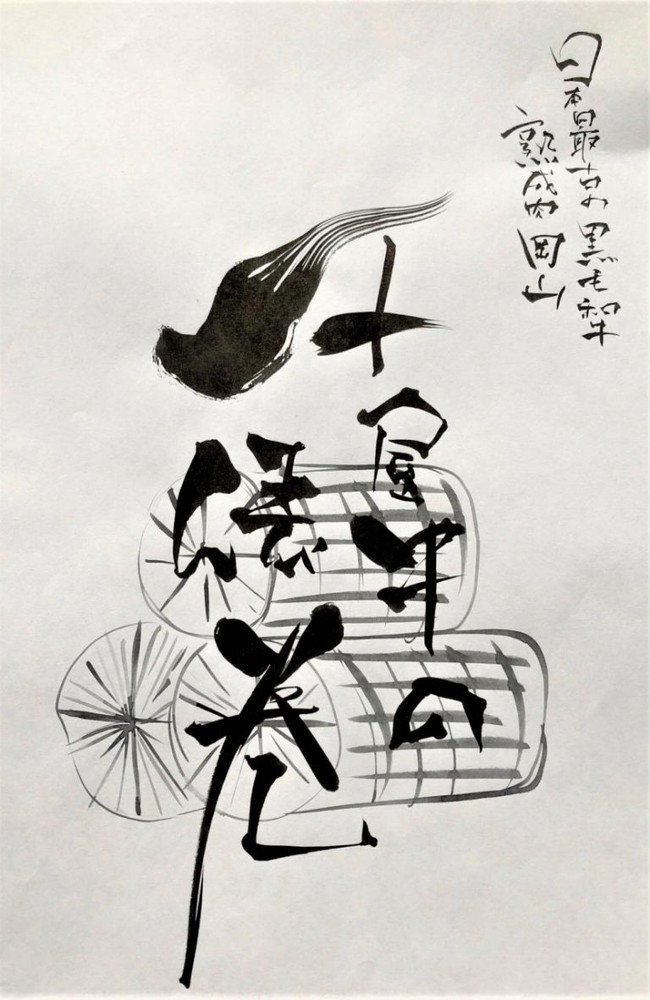 日本最古の黒毛和牛
熟成肉岡山
千屋牛の
俵巻